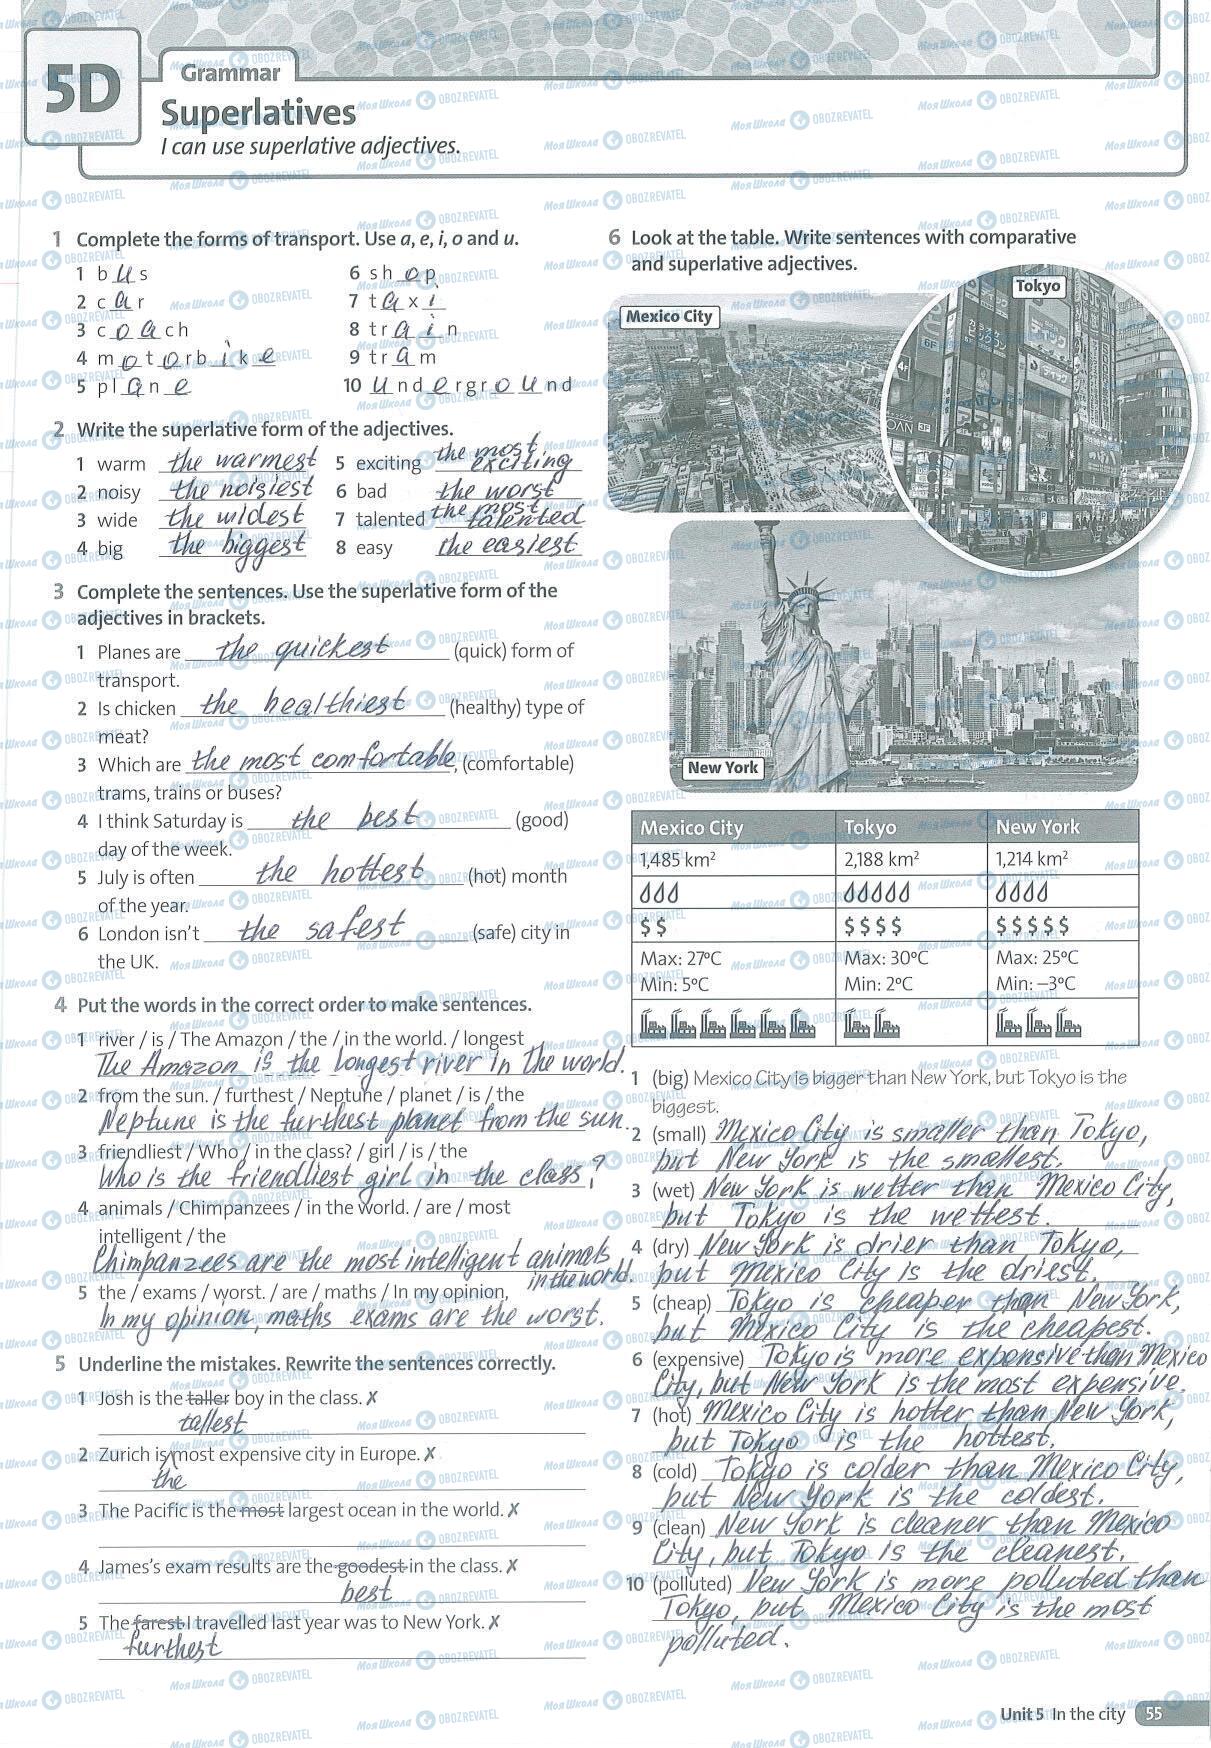 5D
Grammar
Superlatives
I can use superlative adjectives.
1 Complete the forms of transport. Use a, e, i, o and u.
1 b u s
2 c a r
3 c o a ch
4 m o t o rb i k e
5 pl a n e
6 sh o p
7 t a x i
8 tr a i n
9 tr a m
10 u nd e rgr o u nd
2 Write the superlative form of the adjectives.
1 warm the warmest
2 noisy the noisiest
3 wide the widest
4 big the biggest
5 exciting the most exciting
6 bad the worst
7 talented the most talented
8 easy the easiest
3 Complete the sentences. Use the superlative form of the
adjectives in brackets.
1 Planes are the quickest (quick) form of
transport.
2 Is chicken the healthiest (healthy) type of
meat?
3 Which are the most comfortable, (comfortable)
trams, trains or buses?
4 I think Saturday is the best (good)
day of the week.
5 July is often the hottest (hot) month
of the year.
6 London isn't the safest (safe) city in
the UK.
4 Put the words in the correct order to make sentences.
1 river / is / The Amazon / the / in the world. / longest
The Amazon is the longest river in the world.
2 from the sun. / furthest / Neptune / planet / is / the
Neptune is the furthest planet from the sun.
3 friendliest / Who / in the class? / girl / is / the
Who is the friendliest girl in the class?
4 animals / Chimpanzees / in the world. / are / most
intelligent / the
Chimpanzees are the most intelligent animals
in the world.
5 the / exams / worst. / are / maths / In my opinion,
In my opinion, maths exams are the worst.
5 Underline the mistakes. Rewrite the sentences correctly.
1 Josh is the taller boy in the class. ✗
tallest
2 Zurich is most expensive city in Europe. ✗
the
3 The Pacific is the most largest ocean in the world. ✗
4 James's exam results are the goodest in the class. ✗
best
5 The farest I travelled last year was to New York. ✗
furthest
6 Look at the table. Write sentences with comparative
and superlative adjectives.
Mexico City
Tokyo
New York
Mexico City Tokyo New York
1,485 km² 2,188 km² 1,214 km²
$$ $$$$ $$$$$
Max: 27ºC Max: 30ºC Max: 25ºC
Min: 5ºC Min: 2ºC Min: –3ºC
1 (big) Mexico City is bigger than New York, but Tokyo is the
biggest.
2 (small) Mexico City is smaller than Tokyo,
but New York is the smallest.
3 (wet) New York is wetter than Mexico City,
but Tokyo is the wettest.
4 (dry) New York is drier than Tokyo,
but Mexico City is the driest.
5 (cheap) Tokyo is cheaper than New York,
but Mexico City is the cheapest.
6 (expensive) Tokyo is more expensive than Mexico
City, but New York is the most expensive.
7 (hot) Mexico City is hotter than New York,
but Tokyo is the hottest.
8 (cold) Tokyo is colder than Mexico City,
but New York is the coldest.
9 (clean) New York is cleaner than Mexico
City, but Tokyo is the cleanest.
10 (polluted) New York is more polluted than
Tokyo, but Mexico City is the most
polluted.
Unit 5 In the city 55
Моя Школа OBOZREVATEL